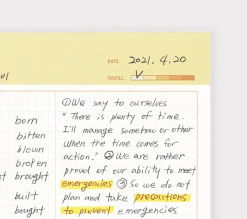 DATE. 2021. 4. 20
FULFILL. V
born
bitten
blown
broken
brought
built
bought
①We say to ourselves
"There is plenty of time.
I'll manage somehow or other
when the time comes for
action." ②We are rather
proud of our ability to meet
emergencies ③So we do not
plan and take precautions
to prevent emergencies